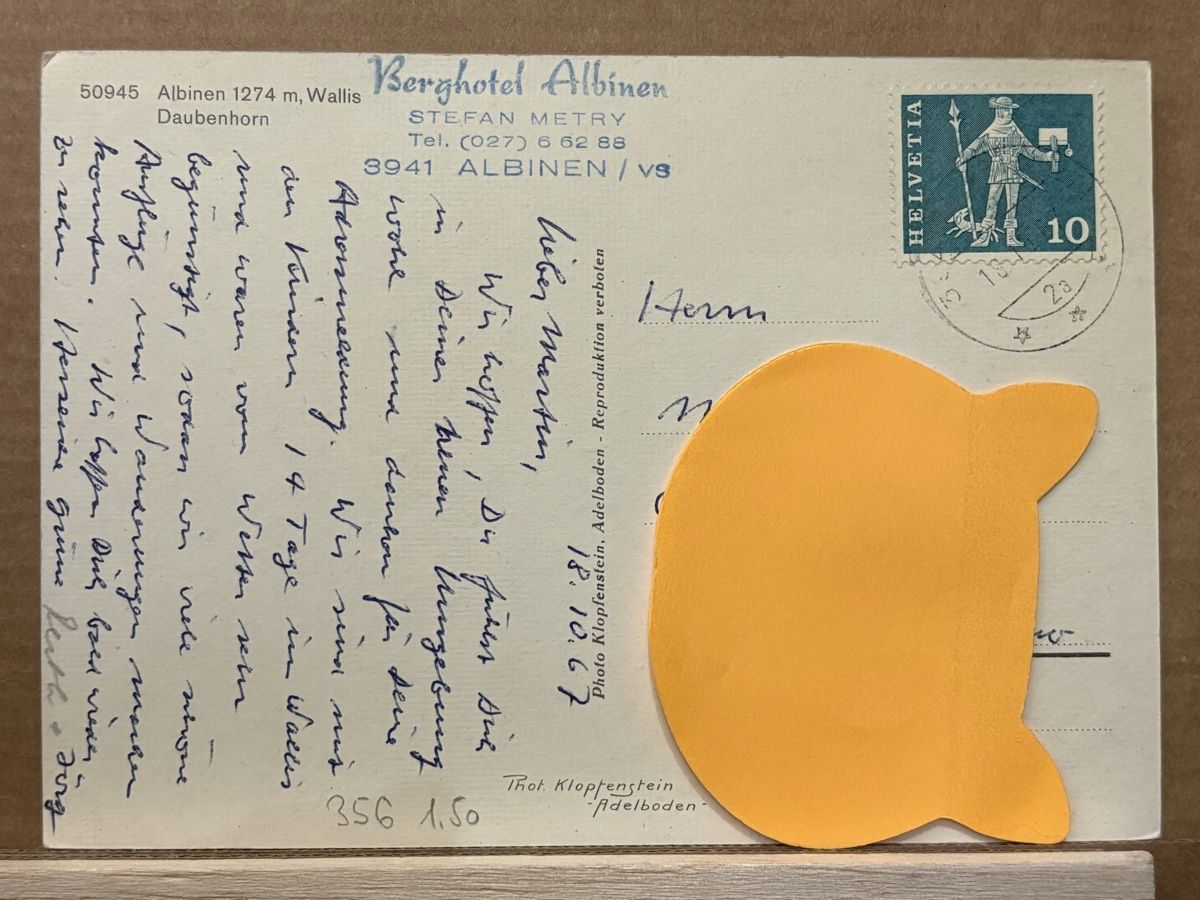 50945 Albinen 1274 m, Wallis
Daubenhorn
Berghotel Albinen
STEFAN METRY
Tel. (027) 6 62 88
3941 ALBINEN / VS
HELVETIA
10
2a
18.10.67
Lieber Martin,
Wir hoffen, Du fühlst Dich
in Deiner neuen Umgebung
wohl und danken für Deine
Adressmeldung. Wir sind mit
den Kindern 14 Tage im Wallis
und waren vom Wetter sehr
begünstigt, sodass wir viele schöne
Ausflüge und Wanderungen machen
konnten. Wir hoffen Dich bald wieder
zu sehen. Herzliche Grüsse
Jörg
Photo Klopfenstein, Adelboden - Reproduktion verboten
Phot. Klopfenstein
- Adelboden -
Herrn
356 1.50